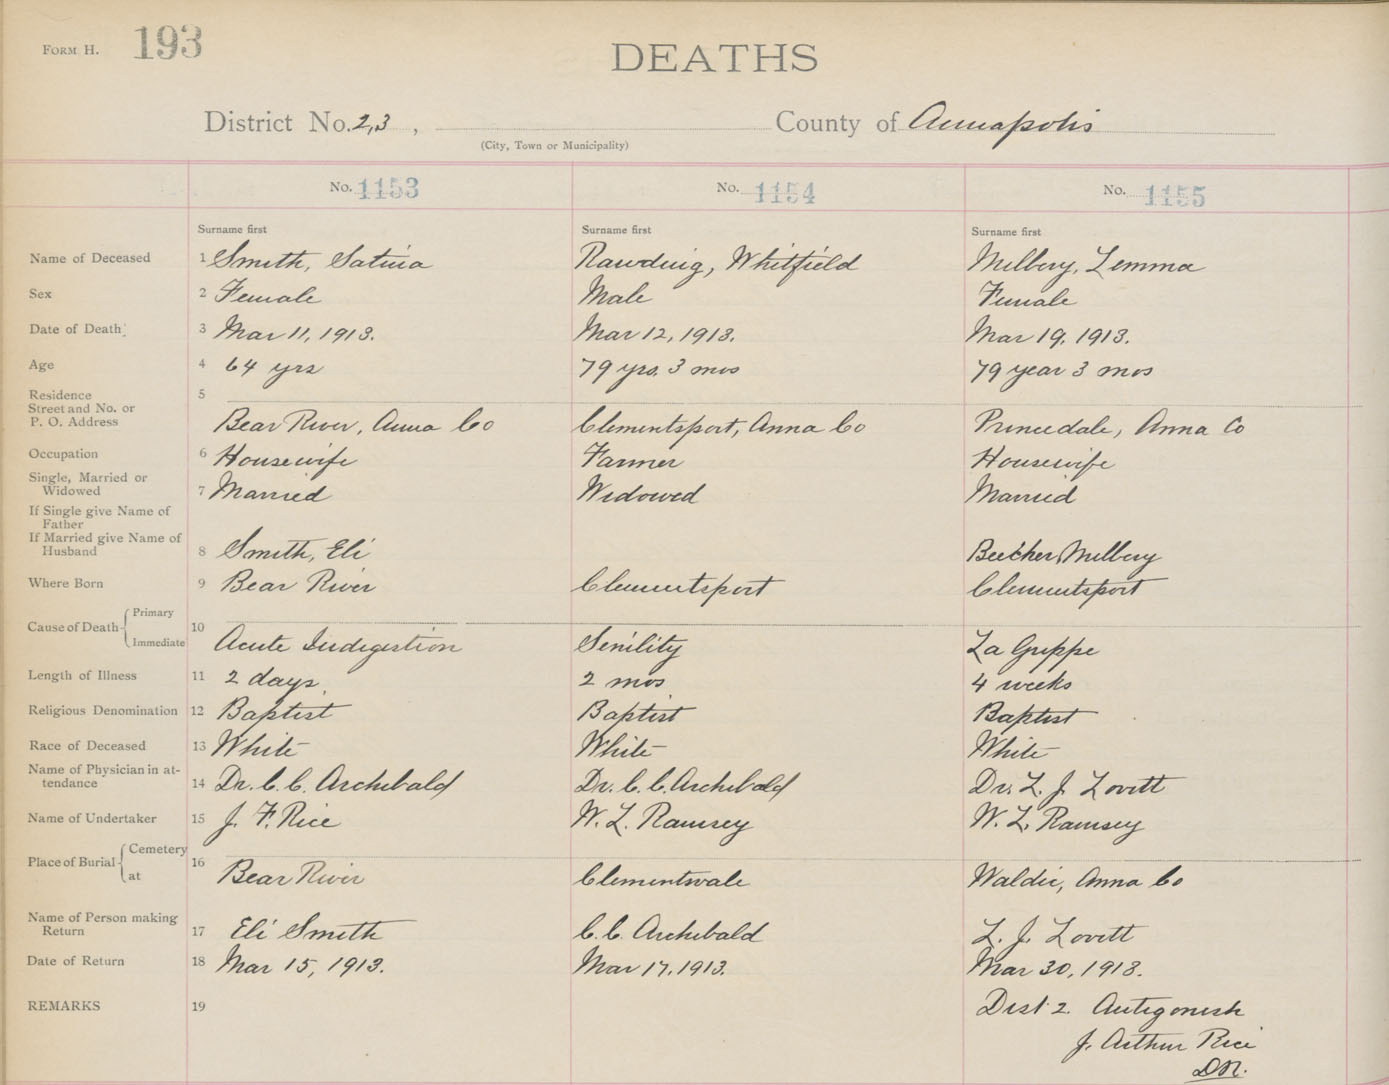 FORM H. 193
DEATHS
District No. 2,3 , County of Annapolis
(City, Town or Municipality)
No. 1153 No. 1154 No. 1155
Surname first Surname first Surname first
Name of Deceased 1 Smith, Satira Rawding, Whitfield Milbery, Lemma
Sex 2 Female Male Female
Date of Death 3 Mar 11, 1913. Mar 12, 1913. Mar 19, 1913.
Age 4 64 yrs 79 yrs. 3 mos 79 year 3 mos
Residence 5
Street and No. or
P. O. Address Bear River, Anna Co Clementsport, Anna Co Princedale, Anna Co
Occupation 6 Housewife Farmer Housewife
Single, Married or
Widowed 7 Married Widowed Married
If Single give Name of
Father
If Married give Name of
Husband 8 Smith, Eli Beecher Milbery
Where Born 9 Bear River Clementsport Clementsport
Cause of Death Primary
10
Immediate Acute Indigestion Senility La Grippe
Length of Illness 11 2 days. 2 mos 4 weeks
Religious Denomination 12 Baptist Baptist Baptist
Race of Deceased 13 White White White
Name of Physician in at-
tendance 14 Dr. C. C. Archibald Dr. C. C. Archibald Dr. L. J. Lovitt
Name of Undertaker 15 J. F. Rice W. L. Ramsey W. L. Ramsey
Place of Burial Cemetery
16
at Bear River Clementsvale Waldec, Anna Co
Name of Person making
Return 17 Eli Smith C. C. Archibald L. J. Lovitt
Date of Return 18 Mar 15, 1913. Mar 17, 1913. Mar 30, 1913.
REMARKS 19 Dist 2. Antigonish
J. Arthur Rice
D.R.